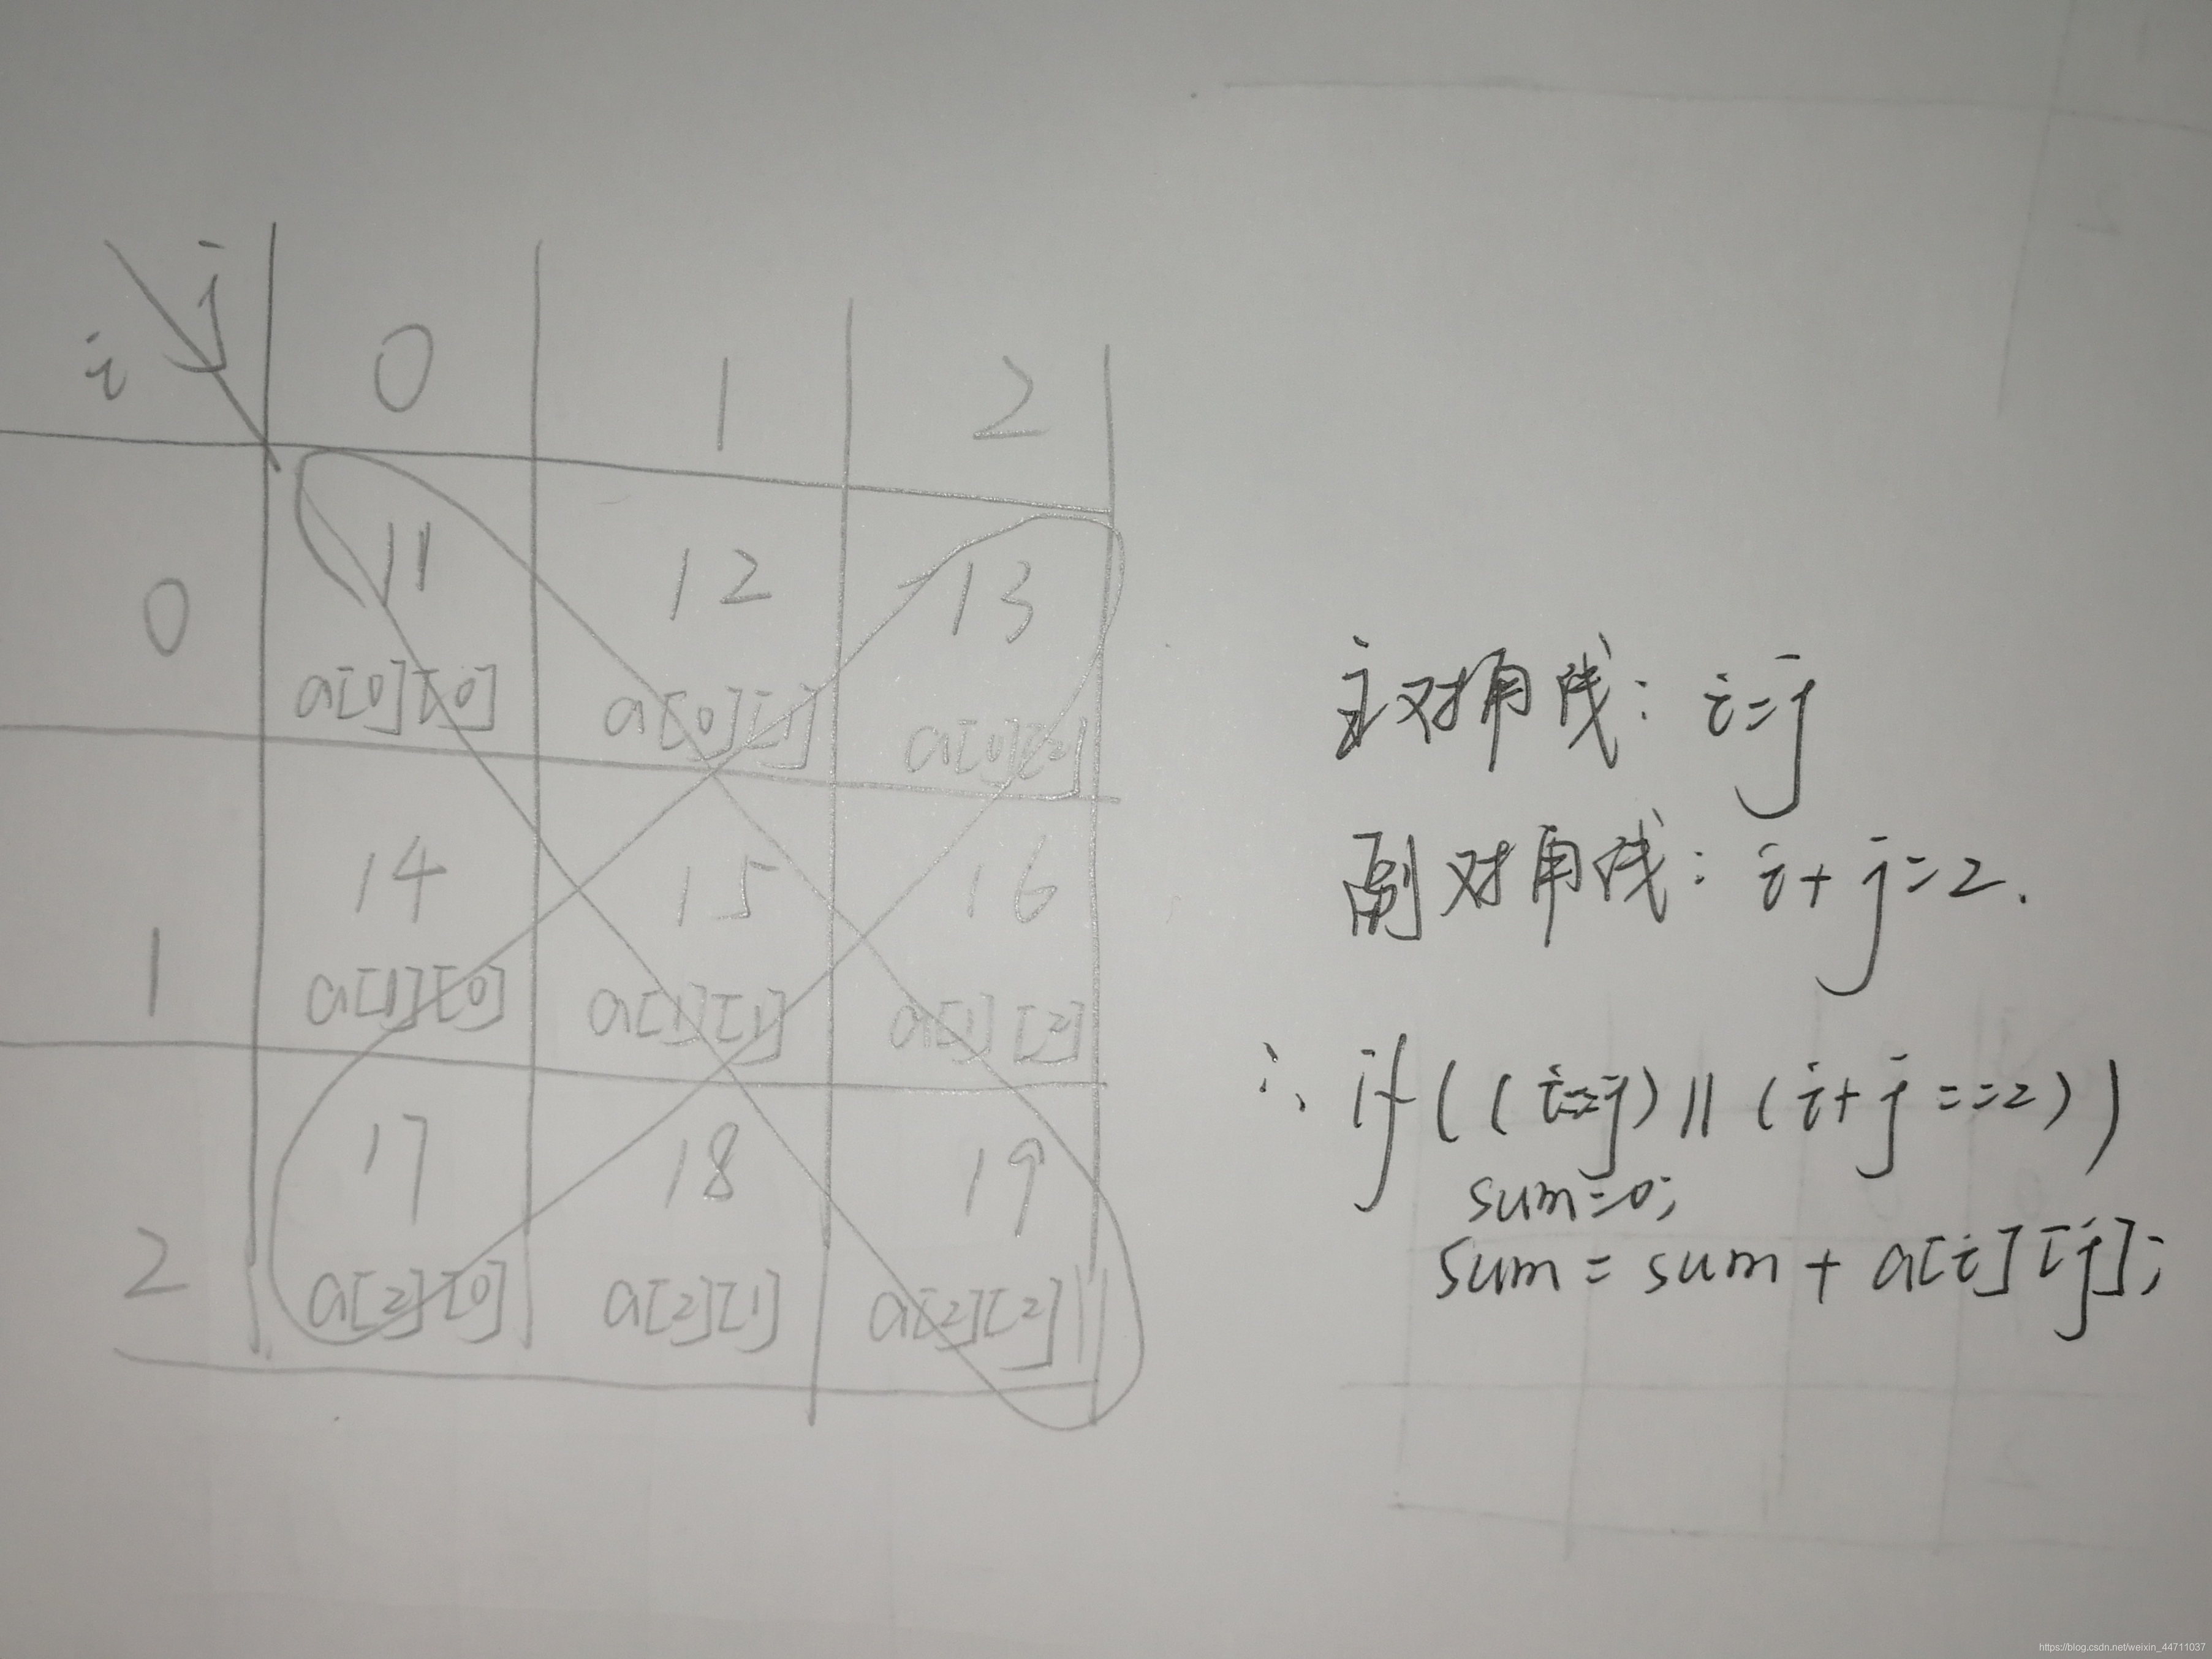 i j 0 1 2
0 11 12 13
a[0][0] a[0][1] a[0][2]
1 14 15 16
a[1][0] a[1][1] a[1][2]
2 17 18 19
a[2][0] a[2][1] a[2][2]
主对角线: i=j
副对角线: i+j=2.
∴ if((i==j)||(i+j==2))
sum=0;
sum=sum+a[i][j];
https://blog.csdn.net/weixin_44711037